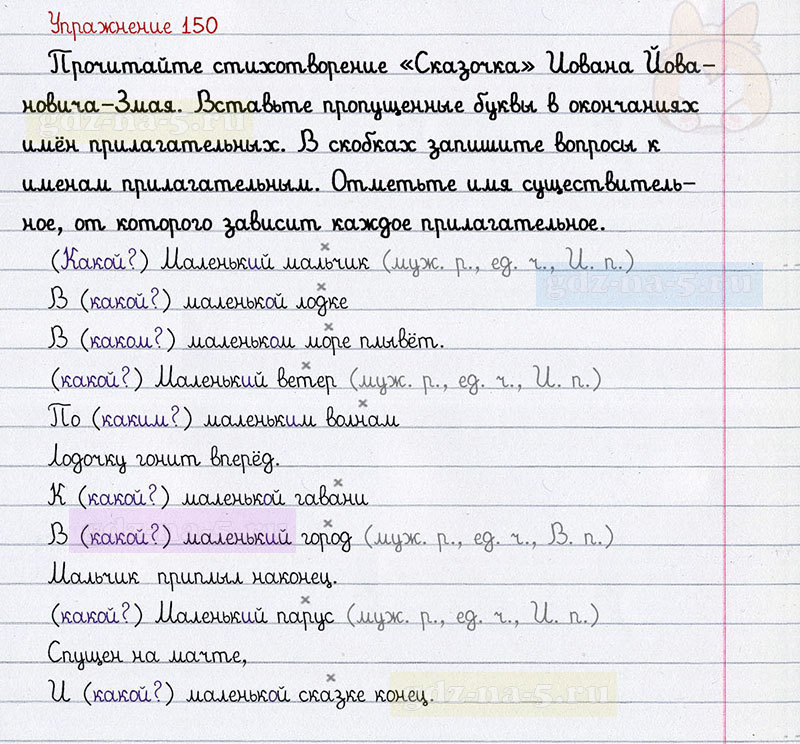 Упражнение 150
Прочитайте стихотворение «Сказочка» Иована Йова-
новича-Змая. Вставьте пропущенные буквы в окончаниях
имён прилагательных. В скобках запишите вопросы к
именам прилагательным. Отметьте имя существитель-
ное, от которого зависит каждое прилагательное.
(Какой?) Маленький мальчик (муж. р., ед. ч., И. п.)
В (какой?) маленькой лодке
В (каком?) маленьком море плывёт.
(какой?) Маленький ветер (муж. р., ед. ч., И. п.)
По (каким?) маленьким волнам
Лодочку гонит вперёд.
К (какой?) маленькой гавани
В (какой?) маленький город (муж. р., ед. ч., В. п.)
Мальчик приплыл наконец.
(какой?) Маленький парус (муж. р., ед. ч., И. п.)
Спущен на мачте,
И (какой?) маленькой сказке конец.
gdz-na-5.ru
gdz-na-5.ru
gdz-na-5.ru
gdz-na-5.ru